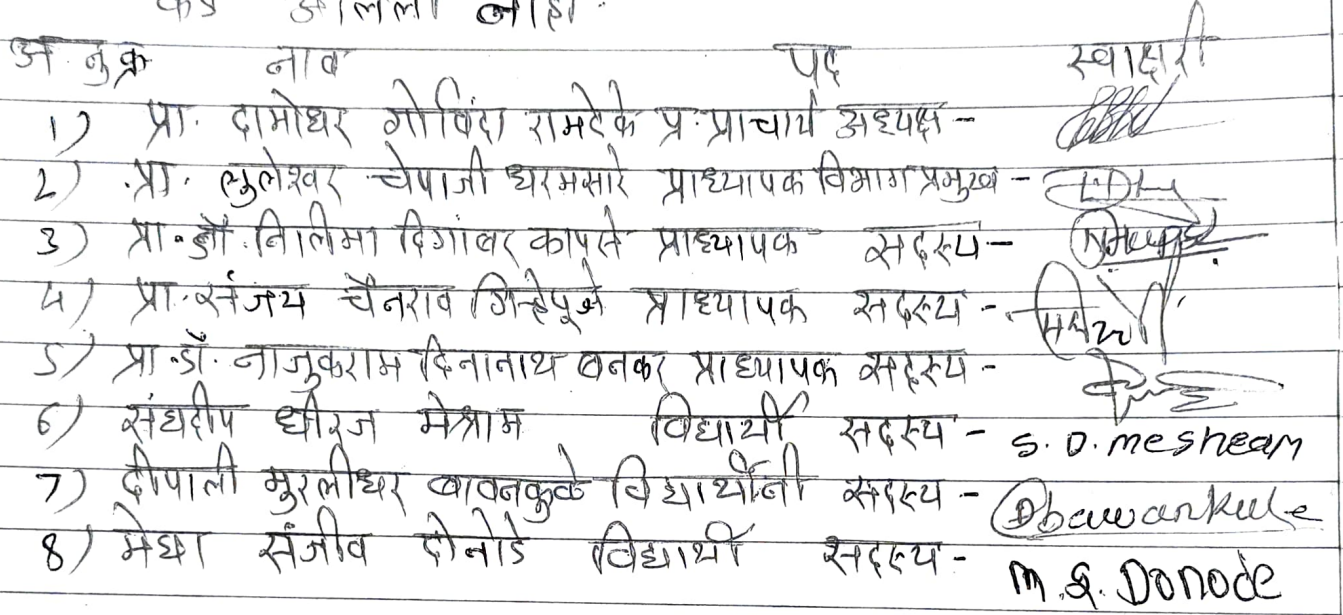 नाही.
अ नुक्र नाव पद स्वाक्षरी
1) प्रा. दामोधर गोविंदा रामटेके प्र. प्राचार्य अध्यक्ष -
2) प्रा. लुलेश्वर चेपाजी धरमसारे प्राध्यापक विभाग प्रमुख -
3) प्रा. डॉ. निलिमा दिगांबर कापसे प्राध्यापक सदस्य -
4) प्रा. संजय चैनराव गिऱ्हेपूंजे प्राध्यापक सदस्य -
5) प्रा. डॉ. नाजुकराम दिनानाथ बनकर प्राध्यापक सदस्य -
6) संघदीप धीरज मेश्राम विद्यार्थी सदस्य - S. D. meshram
7) दीपाली मुरलीधर बावनकुळे विद्यार्थीनी सदस्य - Dbawankule
8) मेघा संजीव दोनोडे विद्यार्थी सदस्य - M. S. Donode